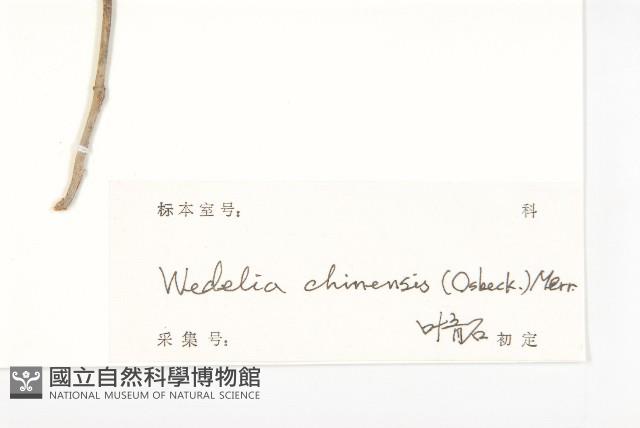 标本室号: 科
Wedelia chinensis (Osbeck.) Merr.
采集号: 叶育石 初定
國立自然科學博物館
NATIONAL MUSEUM OF NATURAL SCIENCE